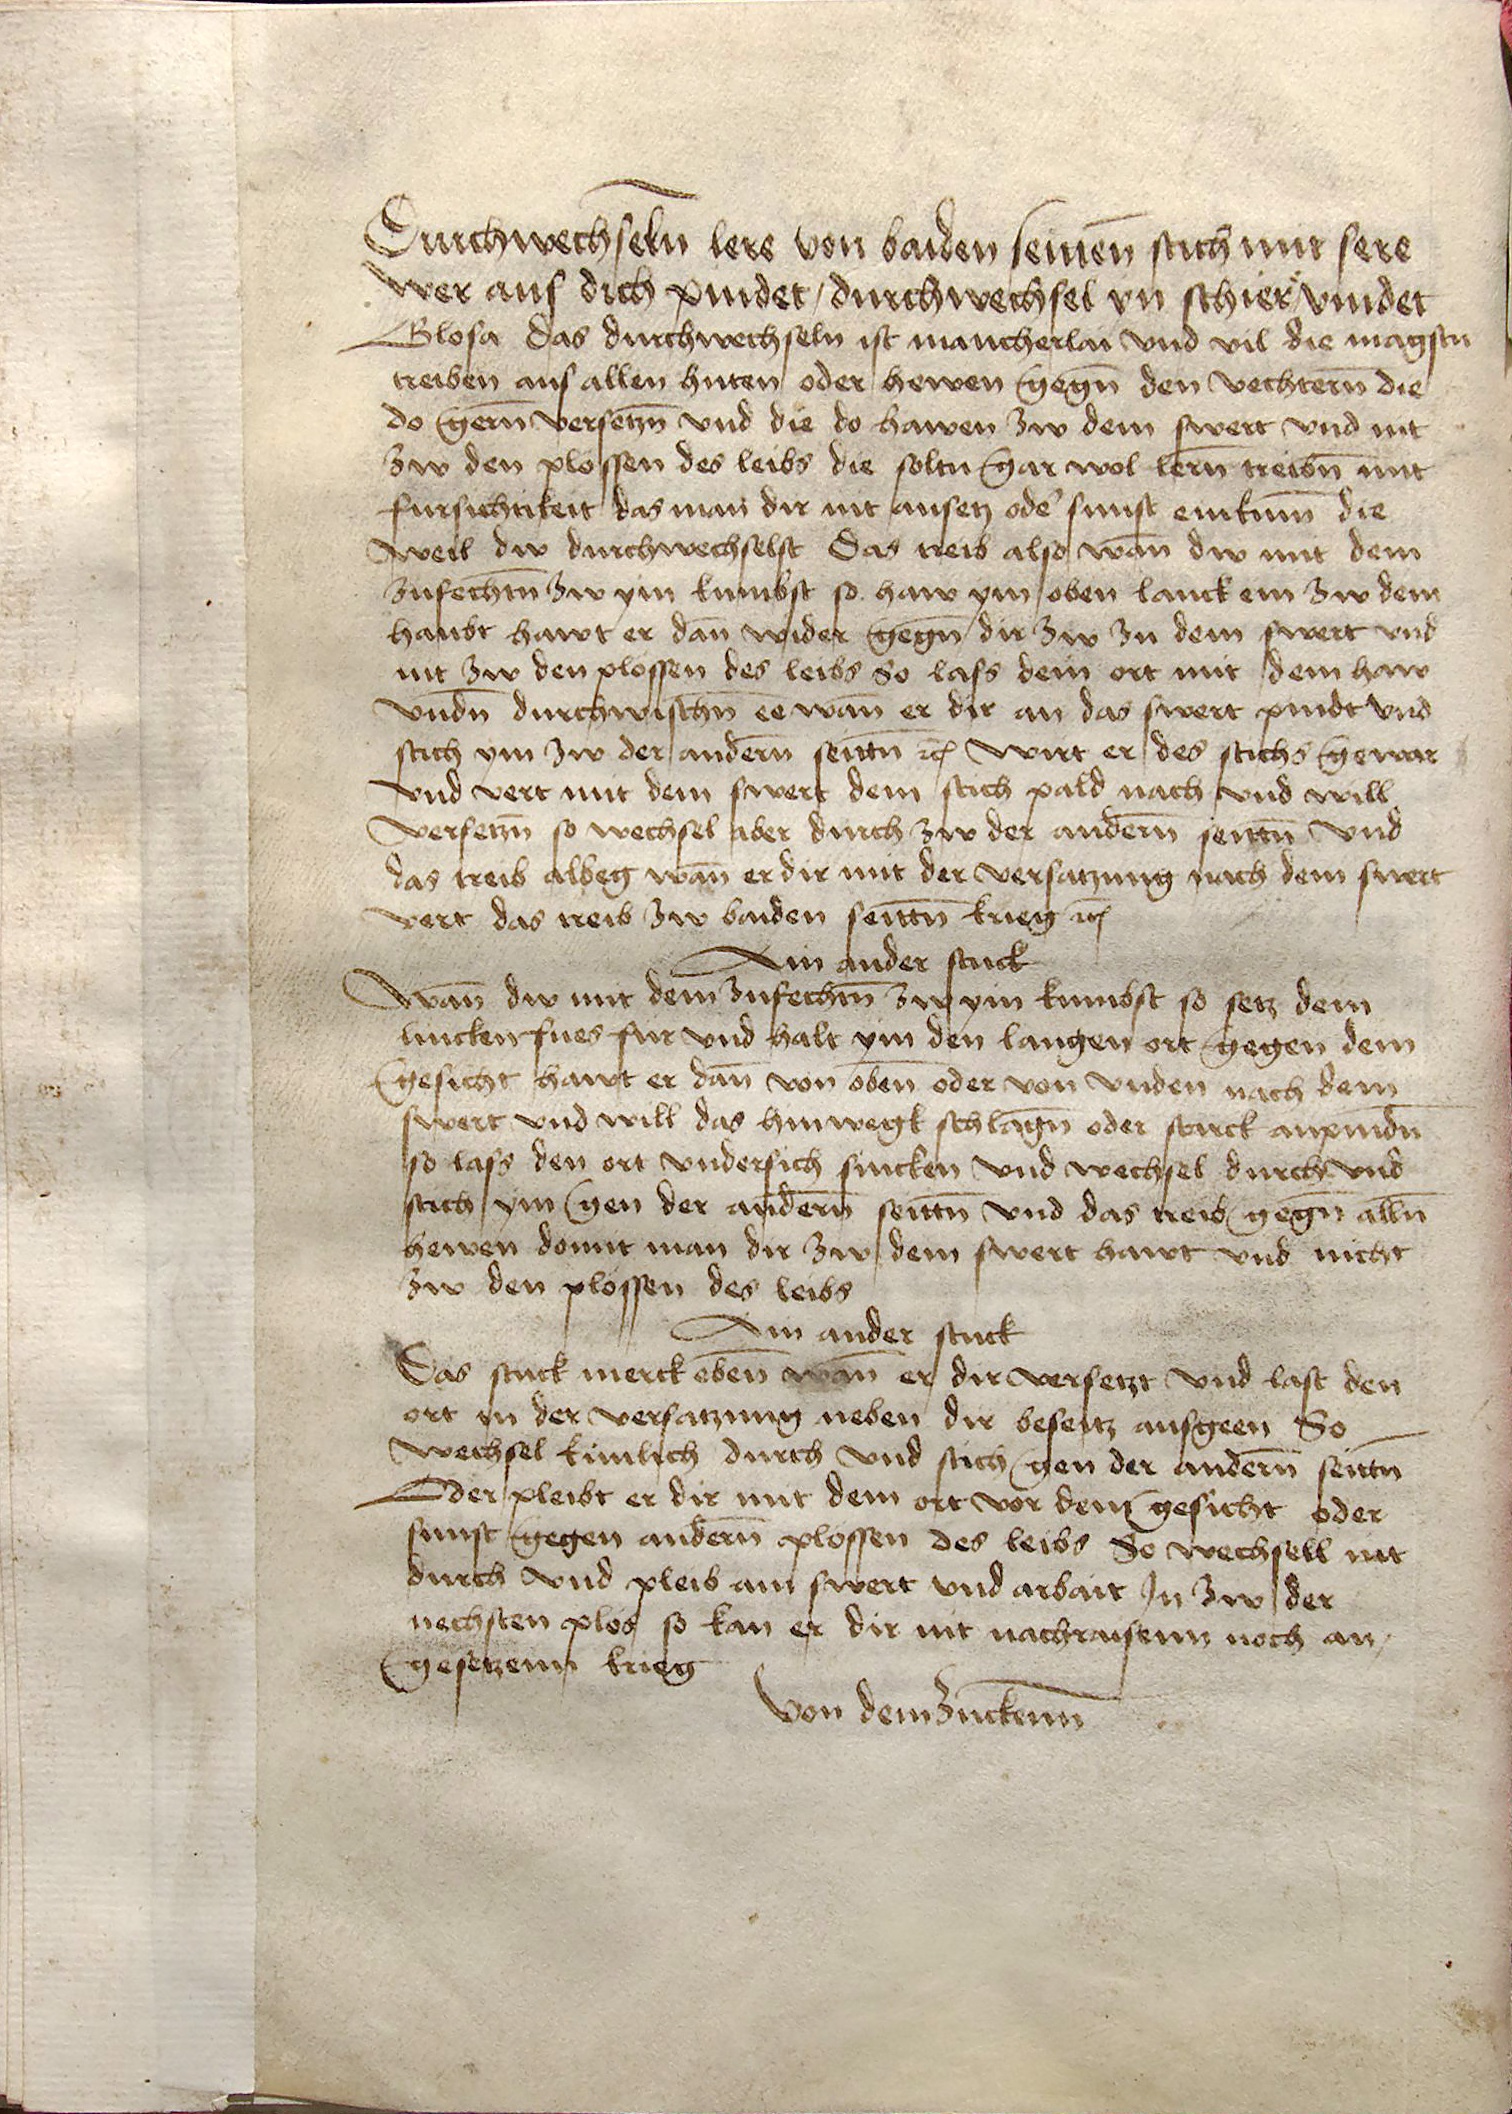 Durchwechseln̄ lere von baiden seittēn stich mit sere
wer auf dich pindet / durchwechsel yn schier vindet
Glosa das durchwechseln ist mancherlai vnd vil die magstu
treiben aus allen huten oder hewen gegn̄ den vechterñ die
do gerñ versetzn̄ vnd die do hawen zw dem swert vnd nit
zw den plossen des leibs die soltu gar wol lerñ treibn̄ mit
fursichtikeit das man dir nit ansetz ode’ sunst einkum̄ die
weil dw durchwechselst Das treib also wān dw mit dem
zufechtn̄ zw ym kumbst so haw ym oben lanck ein zw dem
haubt hawt er dān wider gegn̄ dir zw zu dem swert vnd
nit zw den plossen des leibs So lass dein ort mit dem haw
vndn̄ durchwischn̄ ee wān er dir an das swert pindt vnd
stich ym zw der anderñ seittn̄ ꝛc̄ wirt er des stichs gewar
vnd vert mit dem swert dem stich pald nach vnd will
versetzn̄ so wechsel aber durch zw der anderñ seittn̄ vnd
das treib albeg wān er dir mit der versatzung nach dem swert
vert das treib zw baiden seittn̄ krieg ꝛc̄
Ain ander stuck
wān dw mit dem zufechtn̄ zw ym kumbst so setz dein
lincken fues fur vnd halt ym den langen ort gegen dem
gesicht hawt er dān von oben oder von vnden nach dem
swert vnd will das hinwegk schlagn̄ oder starck anpindn̄
so lass den ort vndersich sincken vnd wechsel durch vnd
stich ym gen der anderñ seittn̄ vnd das treib gegn̄ alln̄
hewen domit man dir zw dem swert hawt vnd nicht
zw den plossen des leibs
Ain ander stuck
Das stuck merck eben wān er dir versetzt vnd last den
ort in der versatzung neben dir beseitz ausgeen So
wechsel kunlich durch vnd stich gen der anderñ seittn̄
Oder pleibt er dir mit dem ort vor dem gesicht oder
sunst gegen anderñ plossen des leibs So wechsell nit
durch vnd pleib am swert vnd arbait Jn zw der
nechsten plos so kan er dir nit nachraisenn noch an /
gesetzenn krieg
Von dem Zuckenn̄